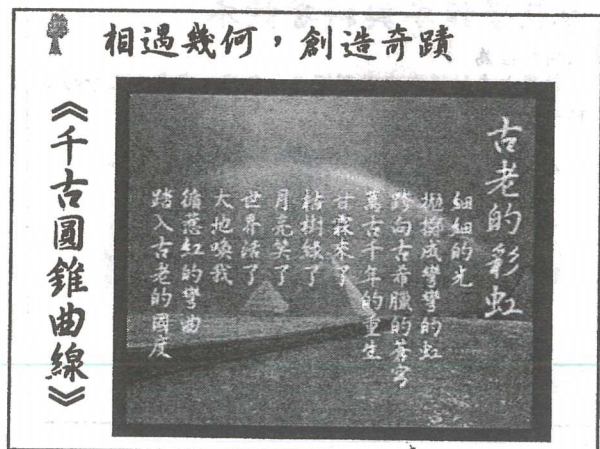 相遇幾何，創造奇蹟
《千古圓錐曲線》
古老的彩虹
細細的光
拋擲成彎彎的虹
跨向古希臘的蒼穹
萬古千年的重生
甘霖來了
枯樹綠了
月亮笑了
世界活了
大地喚我
循紅的彎曲
踏入古老的國度